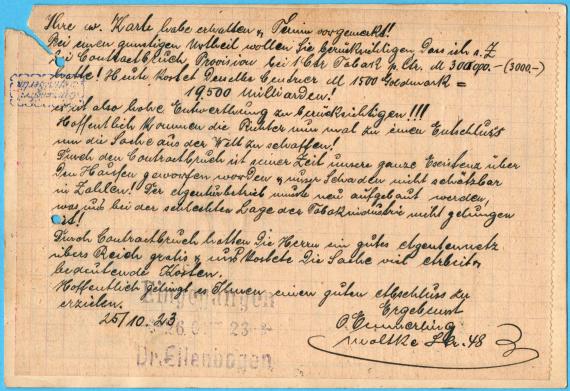 Ihre w. Karte habe erhalten u. Termin vorgemerkt!
Bei einem günstigen Urtheil wollen Sie berücksichtigen, dass ich s. Z.
bei Contractbruch Provision bei 1 Ctr Tabak p. Ctr. M 3000.- (3000,-)
hatte! Heute kostet derselbe Centner M 1500 Goldmark =
19500 Milliarden!
ist also hohe Entwerthung zu berücksichtigen!!!
Hoffentlich kommen die Richter nun mal zu einem Entschluss
um die Sache aus der Welt zu schaffen!
Durch den Contractbruch ist seiner Zeit unsere ganze Existenz über
den Haufen geworfen worden u. unser Schaden nicht schätzbar
in Zahlen! Der Agenturbetrieb musste neu aufgebaut werden,
was uns bei der schlechten Lage der Tabakindustrie nicht gelungen
ist!
Durch Contractbruch hatten die Herren ein gutes Agentennetz
übers Reich gratis u. uns kostete die Sache viel Arbeit u.
bedeutende Kosten.
Hoffentlich gelingt es Ihnen einen guten Abschluss zu
erzielen.
Ergebenst
25/10.23
O. Emmerling
Moltke Str. 48
Eingegangen
26.O 23
Dr. Ellenbogen